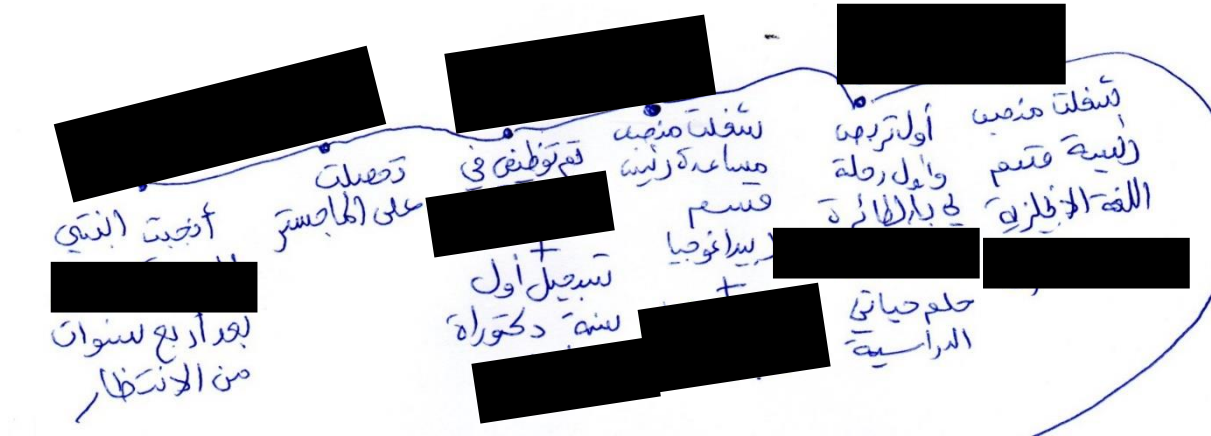 شغلت منصب
رئيسة قسم
اللغة الإنجليزية
أول تربص
وأول رحلة
لي بالطائرة
حلم حياتي
الدراسية
شغلت منصب
مساعدة رئيس
قسم
بيداغوجيا
+
تم توظيفي في
+
تسجيل أول
سنة دكتوراة
تحصلت
على الماجستر
أنجبت ابنتي
بعد أربع سنوات
من الانتظار